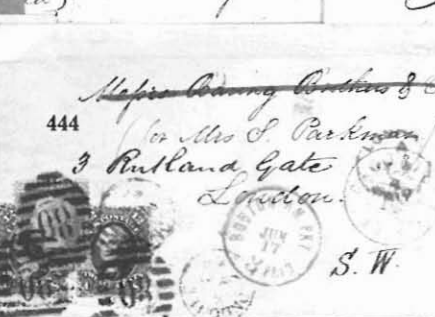 Messrs Baring Brothers & C
444
for Mrs S. Parkman
3 Rutland Gate
London.
BOSTON
JUN
17
S. W.
90